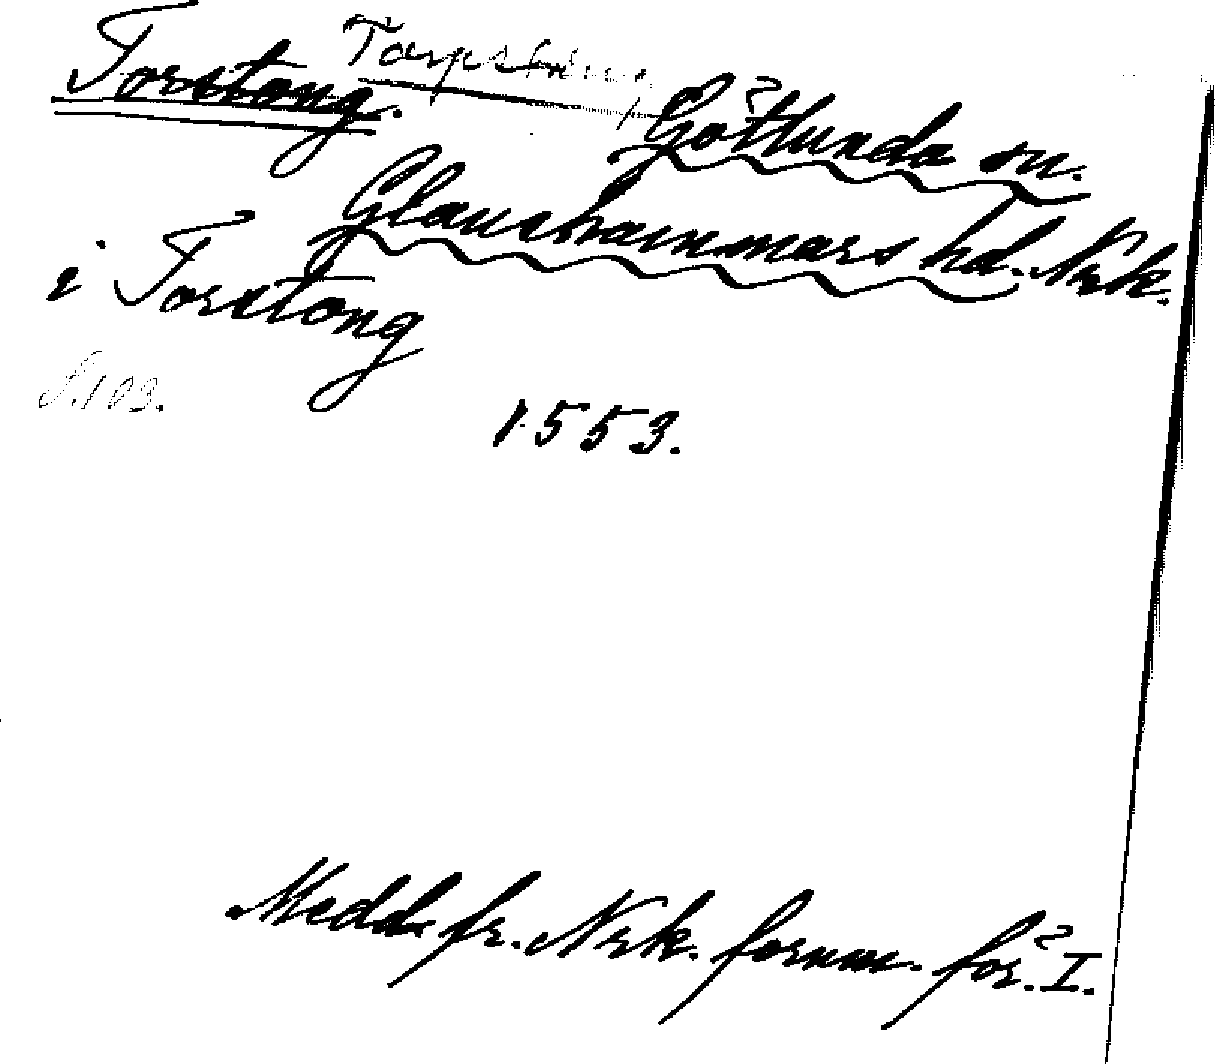 Torstong. Torpstäng
Götlunda sn.
Glanshammars hd. Nrk.
i Torstong
S. 103.
1553.
Medd. fr. Nrk. fornm. för. I.